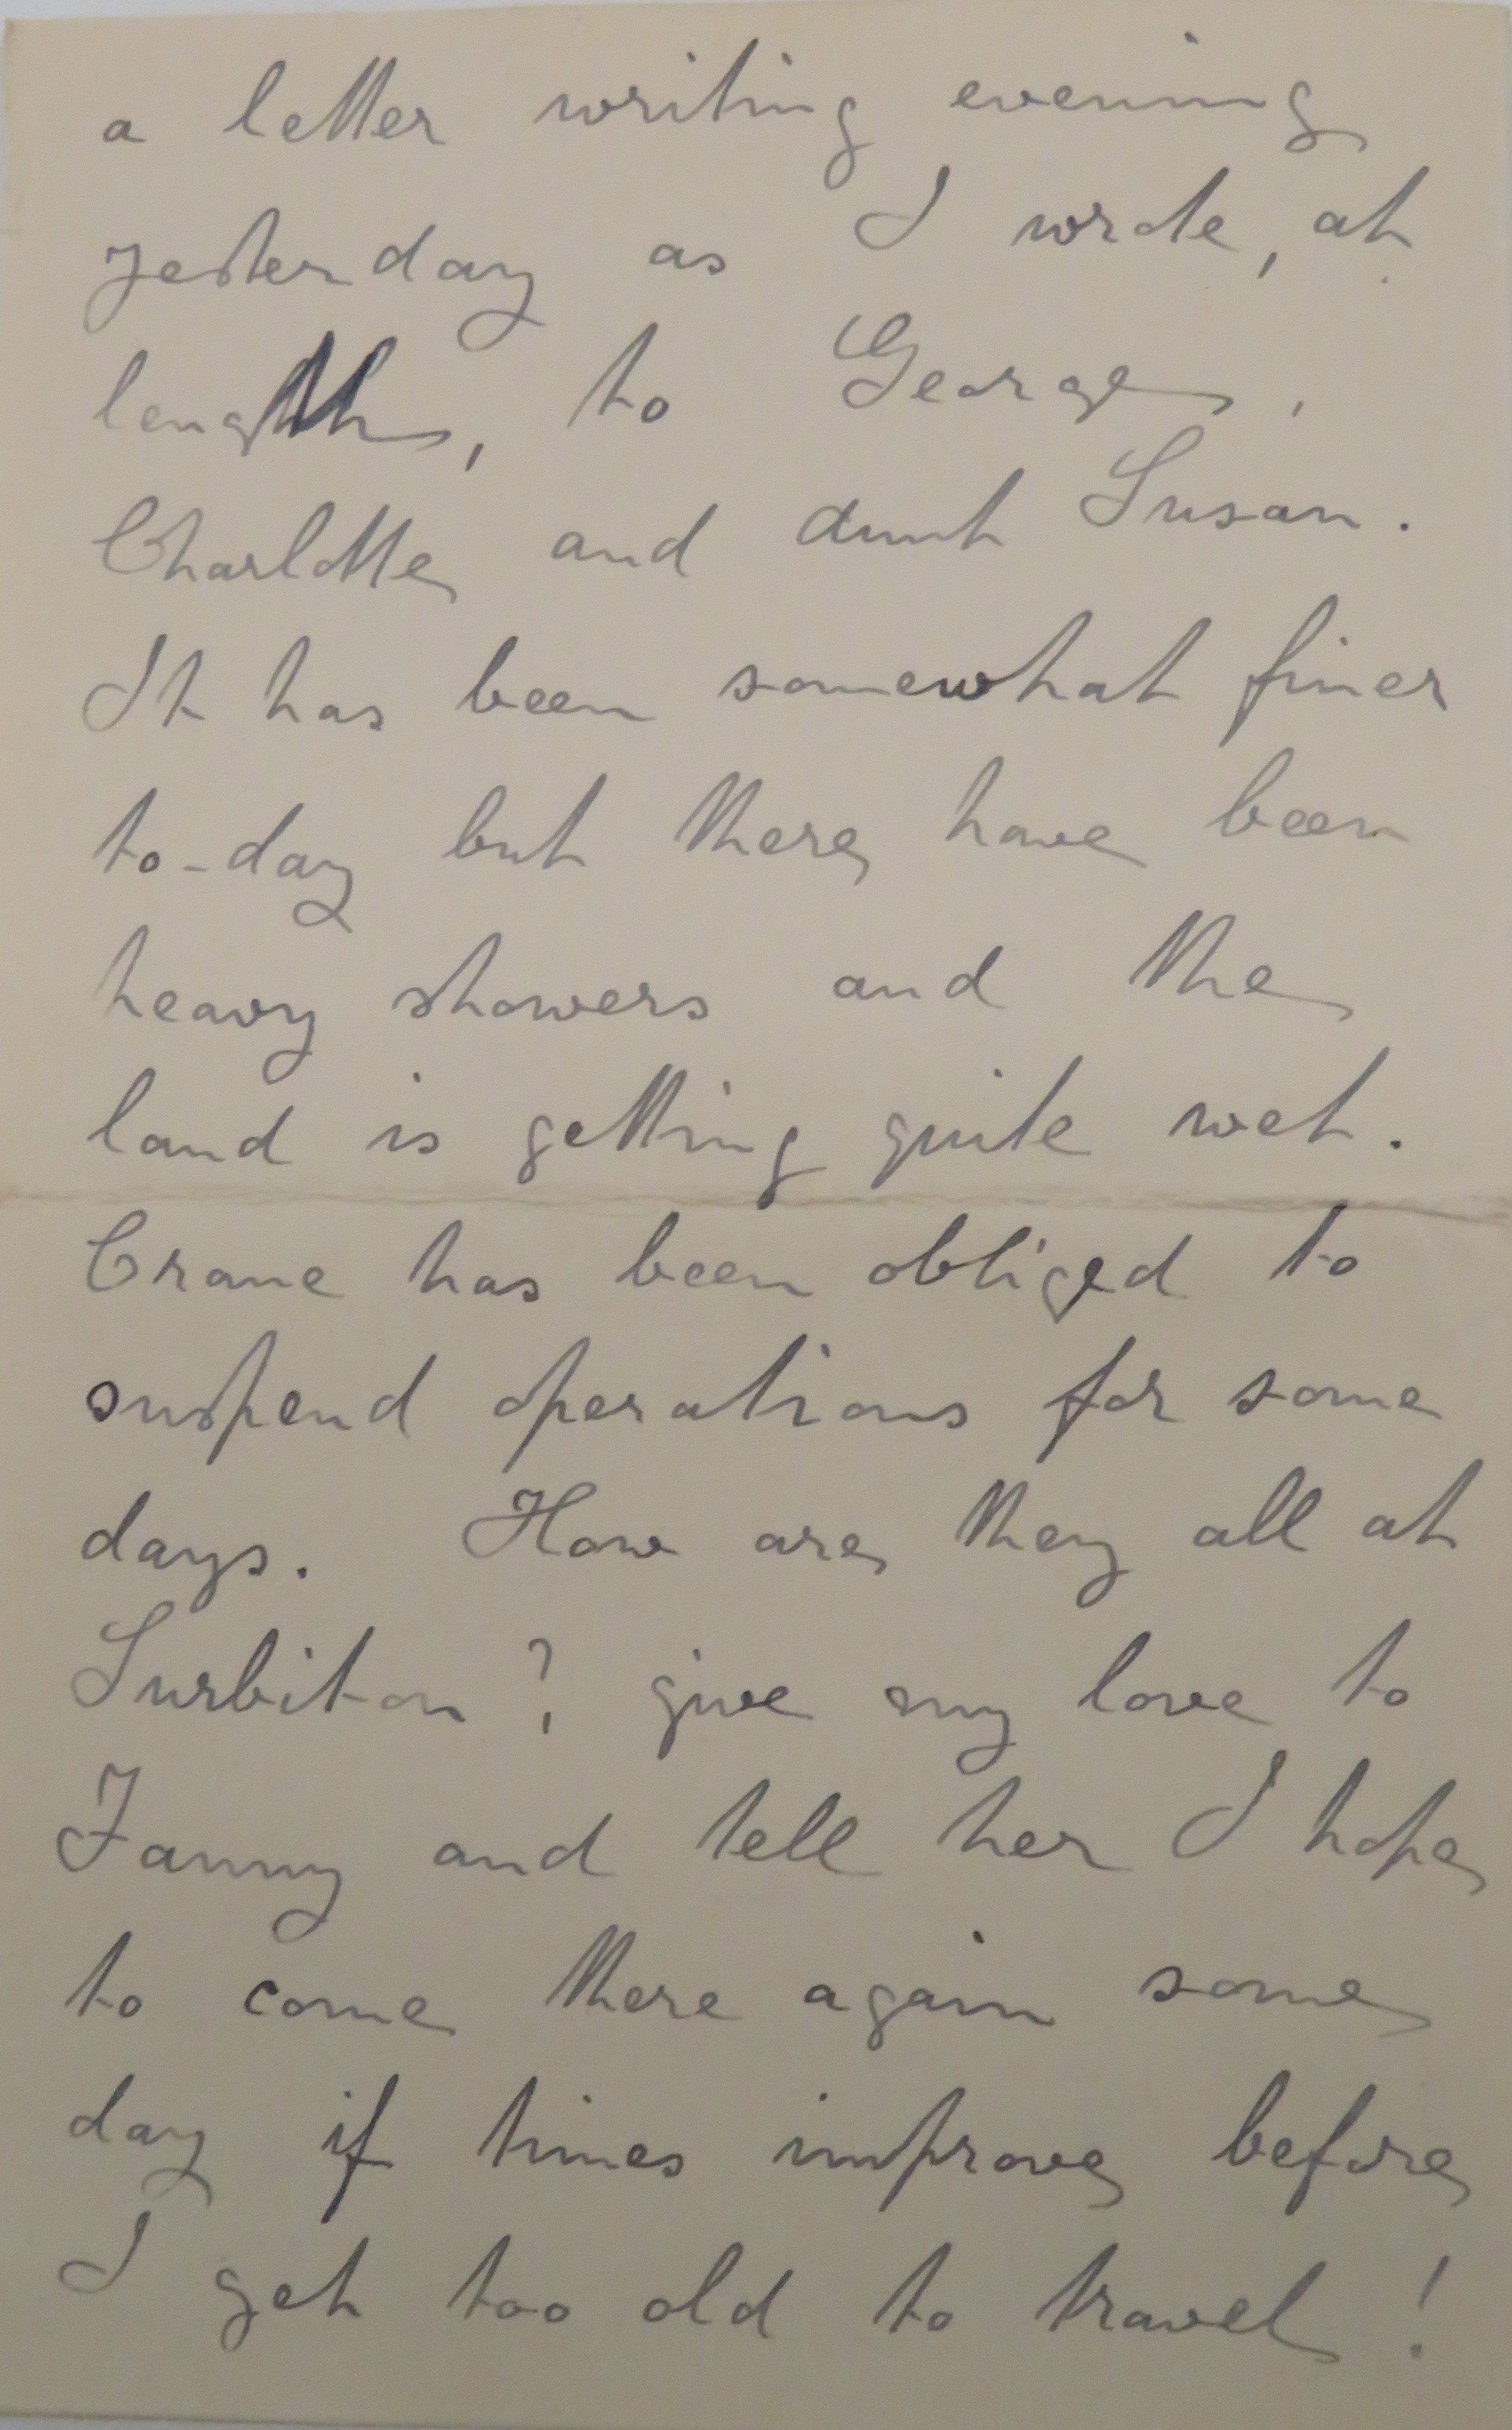 a letter writing evening
yesterday as I wrote, at
length, to George,
Charlotte and Aunt Susan.
It has been somewhat finer
to-day but there have been
heavy showers and the
land is getting quite wet.
Crane has been obliged to
suspend operations for some
days. How are they all at
Surbiton? give my love to
Fanny and tell her I hope
to come there again some
day if times improve before
I get too old to travel!